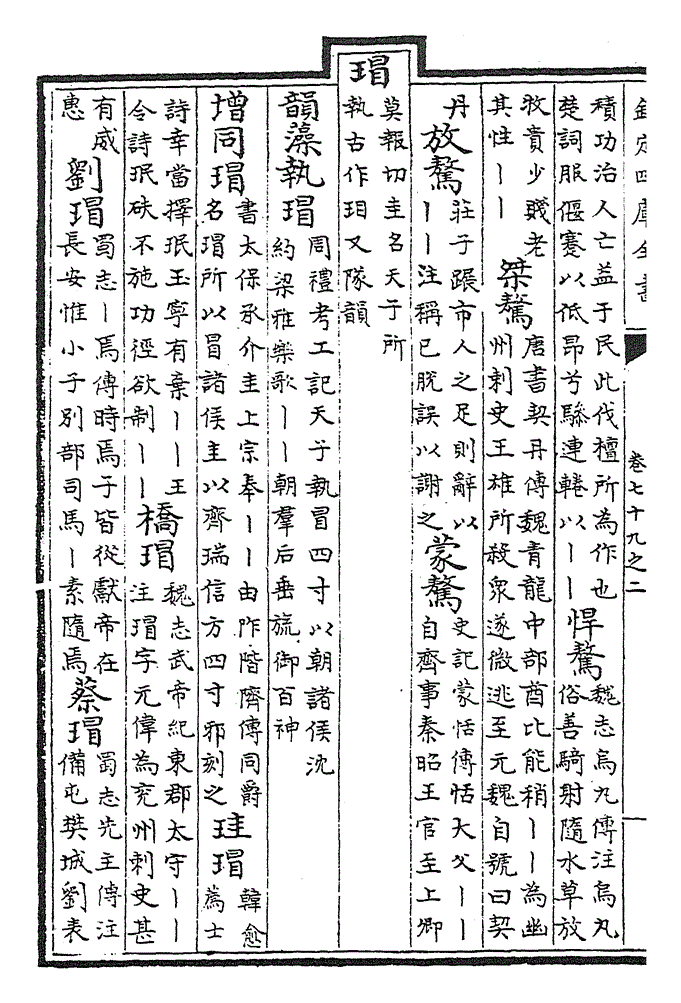 欽定四庫全書
卷七十九之二
積功治人亡益于民此伐檀所為作也
楚詞服偃蹇以低昂兮驂連蜷以丨丨
悍驁
魏志烏丸傳注烏丸
俗善騎射隨水草放
牧貴少賤老
其性丨丨
桀驁
唐書契丹傳魏青龍中部酋比能稍丨丨為幽
州刺史王雄所殺衆遂微逃至元魏自號曰契
丹
放驁
莊子蹍市人之足則辭以
丨丨注稱已脫誤以謝之
蒙驁
史記蒙恬傳恬大父丨丨
自齊事秦昭王官至上卿
瑁
莫報切圭名天子所
執古作玥又隊韻
韻藻
執瑁
周禮考工記天子執冒四寸以朝諸侯沈
約梁雅樂歌丨丨朝羣后垂旒御百神
增
同瑁
書太保承介圭上宗奉丨丨由阼階隮傳同爵
名瑁所以冒諸侯圭以齊瑞信方四寸邪刻之
珪瑁
韓愈
薦士
詩幸當擇珉玉寧有棄丨丨王
令詩珉玞不施功徑欲制丨丨
橋瑁
魏志武帝紀東郡太守丨丨
注瑁字元偉為兖州刺史甚
有威
惠
劉瑁
蜀志丨焉傳時焉子皆從獻帝在
長安惟小子別部司馬丨素隨焉
蔡瑁
蜀志先主傳注
備屯樊城劉表